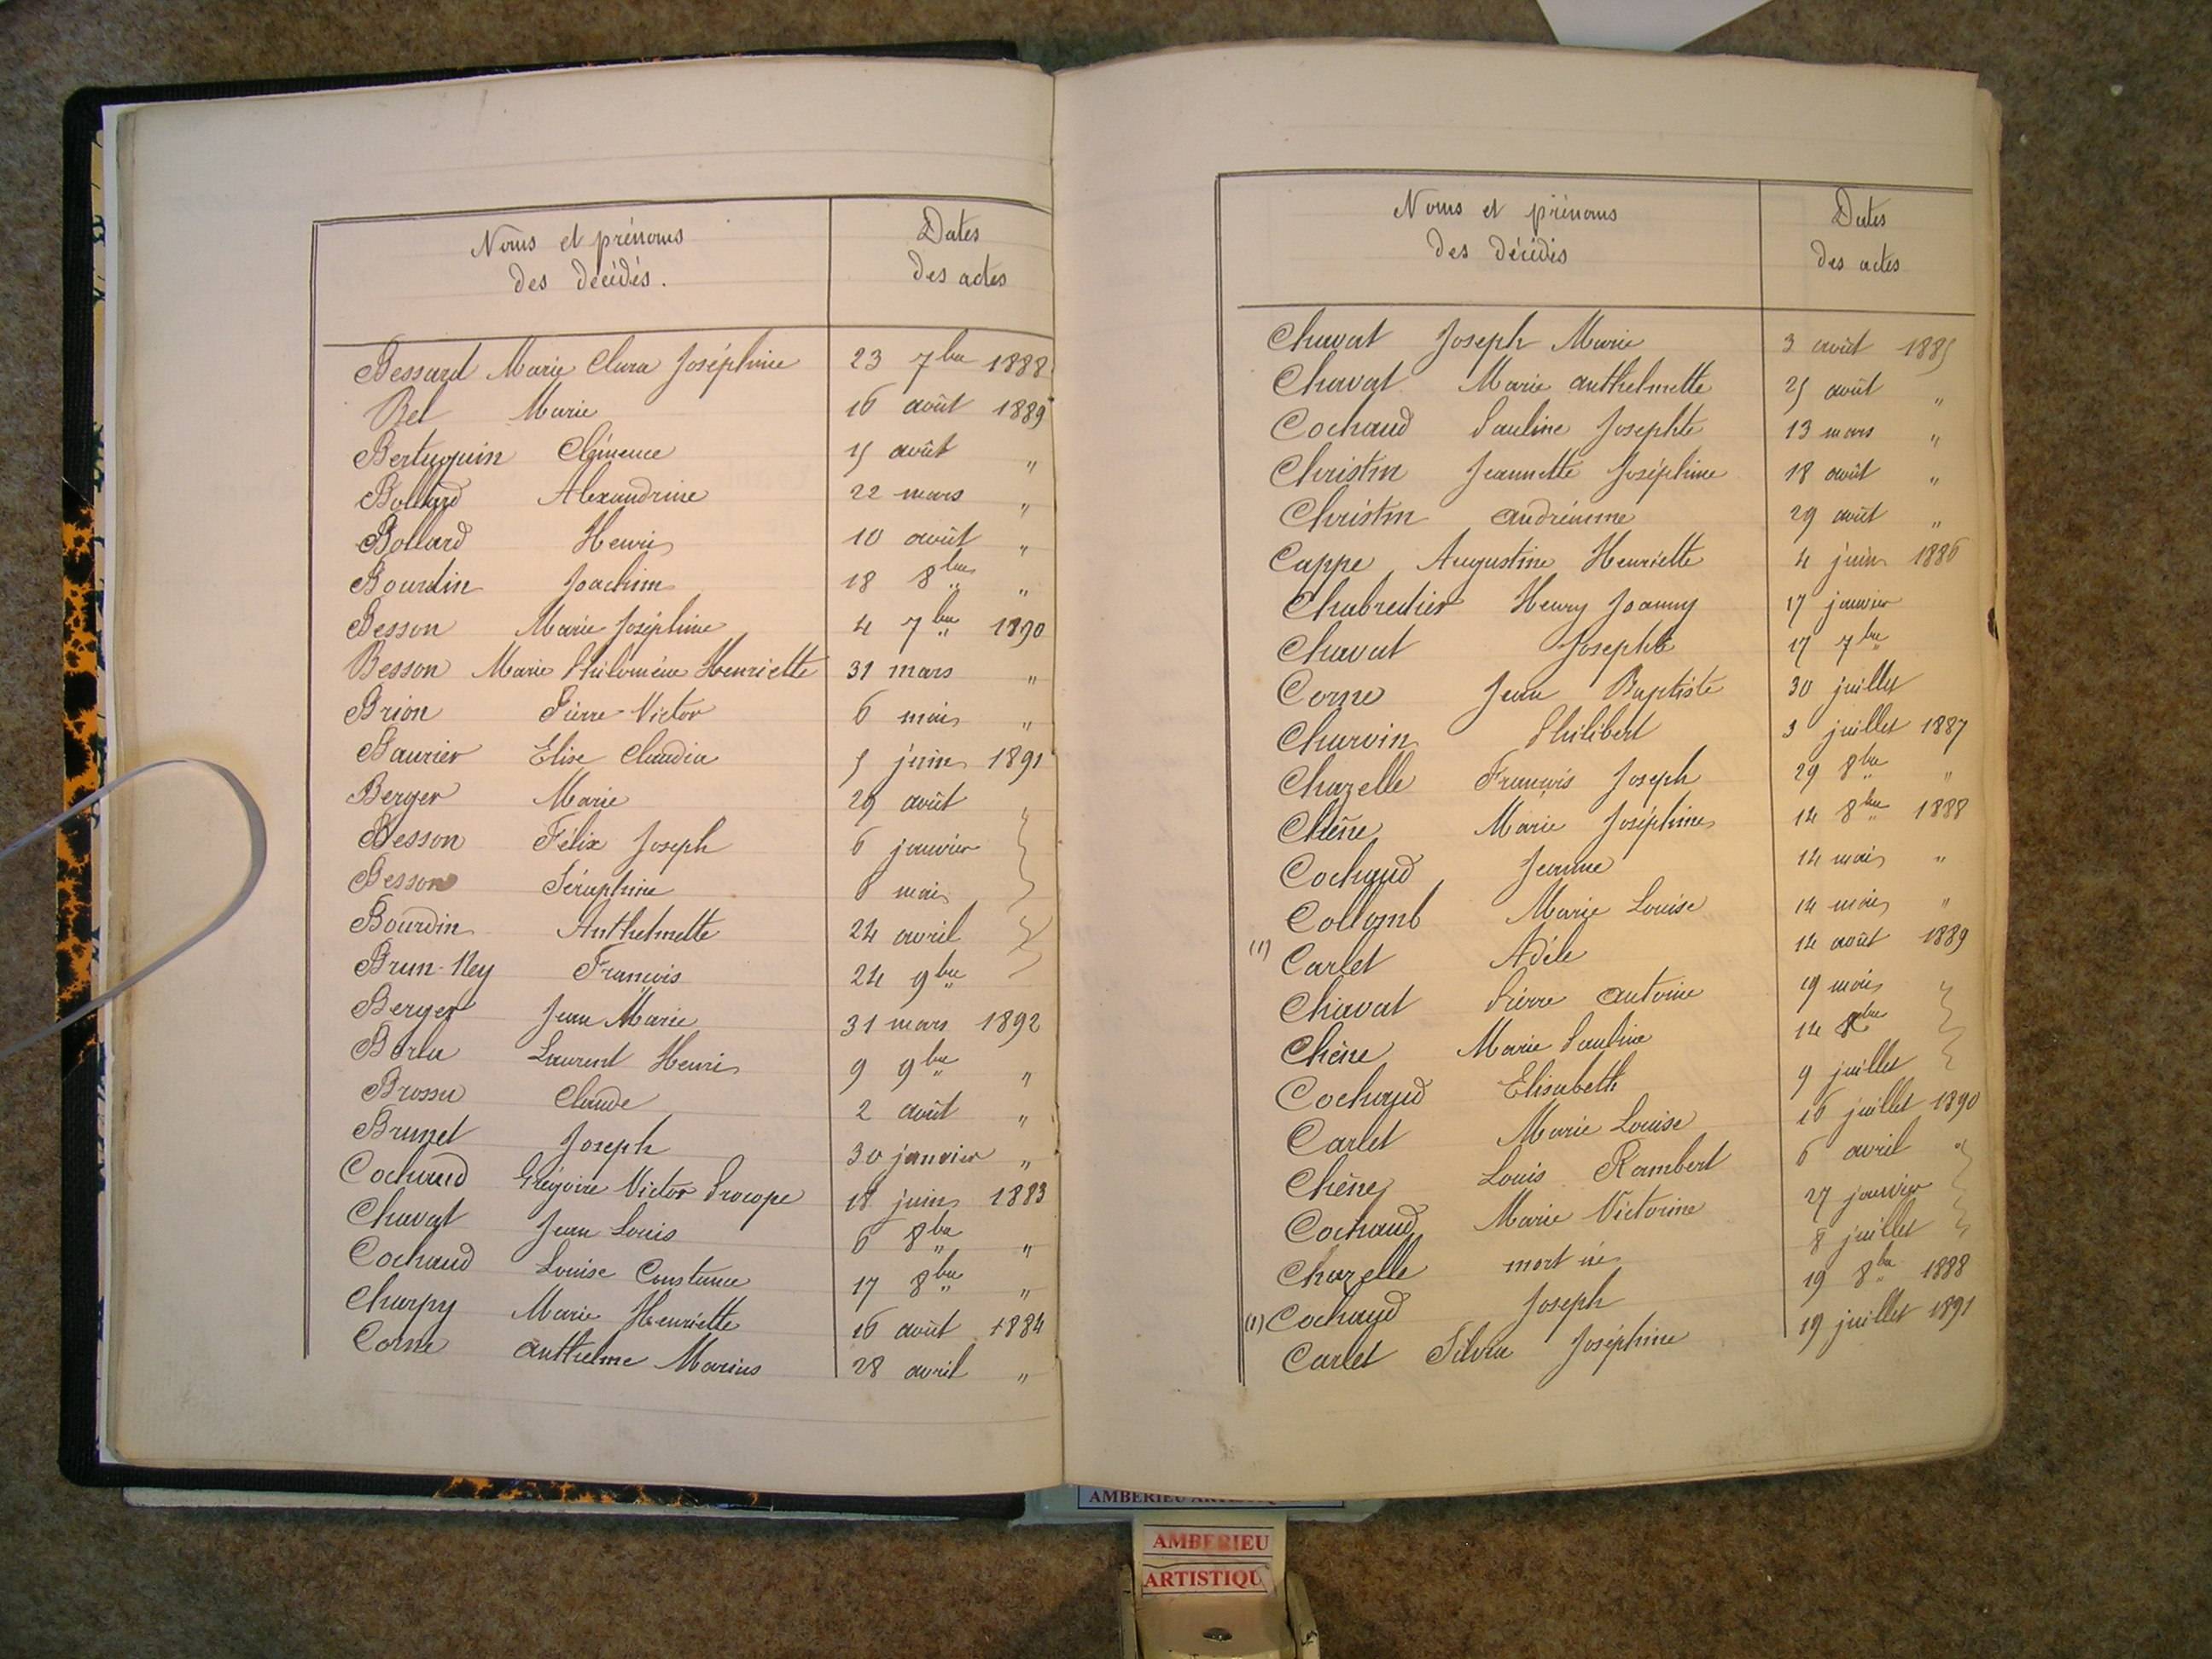 Noms et prénoms
des décédés.
Dates
des actes
Bessard Marie Clara Joséphine 23 7bre 1888
Bel Marie 16 août 1889
Bertuquin Clémence 15 août "
Bollard Alexandrine 22 mars "
Bollard Henri 10 août "
Bourdin Joachim 18 8bre "
Besson Marie Joséphine 4 7bre 1890
Besson Marie Philomène Henriette 31 mars "
Brion Pierre Victor 6 mai "
Baurier Elise Claudia 5 juin 1891
Berger Marie 29 août
Besson Félix Joseph 6 janvier
Besson Séraphine 6 mai
Bourdin Anthelmette 24 avril
Brun-Ney François 24 9bre
Berger Jean Marie 31 mars 1892
Borlu Laurent Henri 9 9bre "
Brossu Claude 2 août "
Brunet Joseph 30 janvier "
Cochaud Grégoire Victor Procope 18 juin 1883
Chavat Jean Louis 6 8bre "
Cochaud Louise Constance 17 8bre "
Charpy Marie Henriette 16 août 1884
Corne Anthelme Marius 28 avril "
Noms et prénoms
des décédés
Dates
des actes
Chavat Joseph Marie 3 août 1885
Chavat Marie Anthelmette 25 août "
Cochaud Pauline Josephte 13 mars "
Christin Jeannette Joséphine 18 août "
Christin Andrémme 29 août "
Cappe Augustine Henriette 4 juin 1886
Chabredier Henry Joanny 17 janvier
Chavat Josephte 17 7bre
Corne Jean Baptiste 30 juillet
Charvin Philibert 3 juillet 1887
Chazelle François Joseph 29 8bre "
Chêne Marie Joséphine 14 8bre 1888
Cochaud Jeanne 14 mai "
Collomb Marie Louise 14 mai "
(1) Carlet Adèle 14 août 1889
Chavat Pierre Antoine 19 mai
Chêne Marie Pauline 14 8bre
Cochaud Elisabeth 9 juillet
Carlet Marie Louise 16 juillet 1890
Chêne Louis Rambert 6 avril "
Cochaud Marie Victorine 27 janvier
Chazelle mort né 8 juillet
(1) Cochaud Joseph 19 8bre 1888
Carlet Silvia Joséphine 19 juillet 1891
AMBERIEU
ARTISTIQU